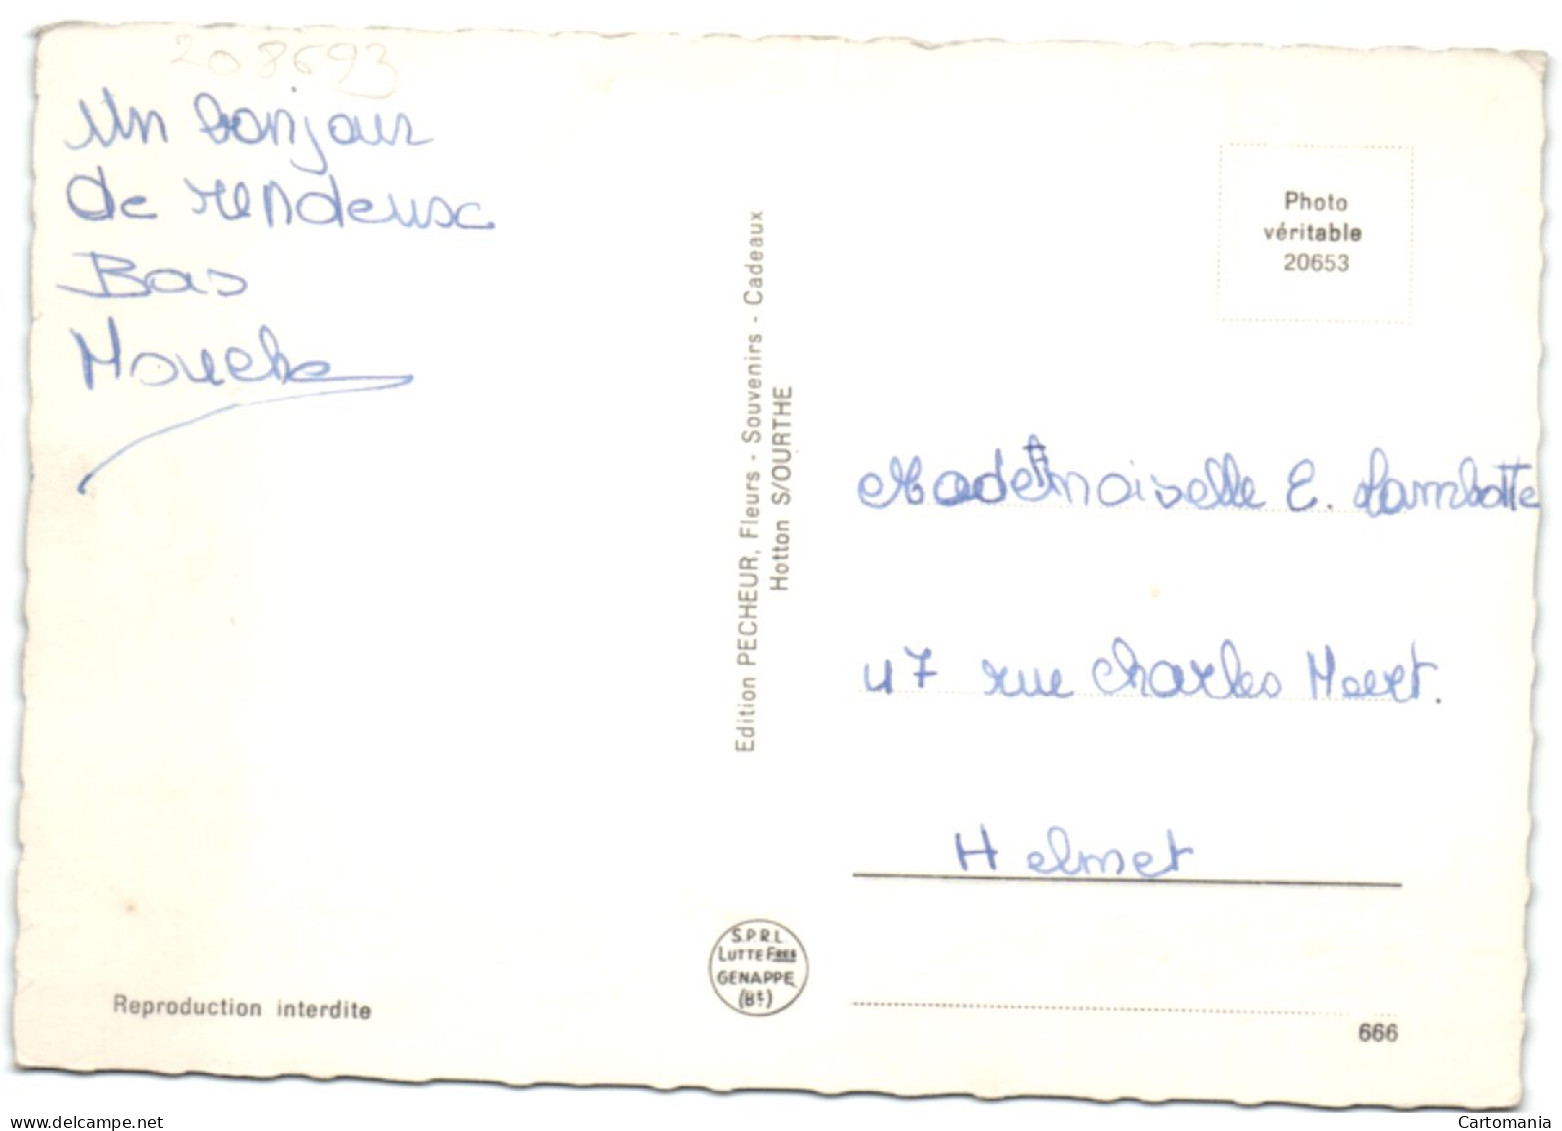 208693
Un bonjour
de rendeux
Bas
Mouche
Edition PECHEUR, Fleurs - Souvenirs - Cadeaux
Hotton S/OURTHE
Photo
véritable
20653
Mademoiselle E. Lambotte
47 rue Charles Meert.
Helmet
S.P.R.L.
LUTTE FRES
GENAPPE
(Bt)
Reproduction interdite
666
www.delcampe.net
Cartomania